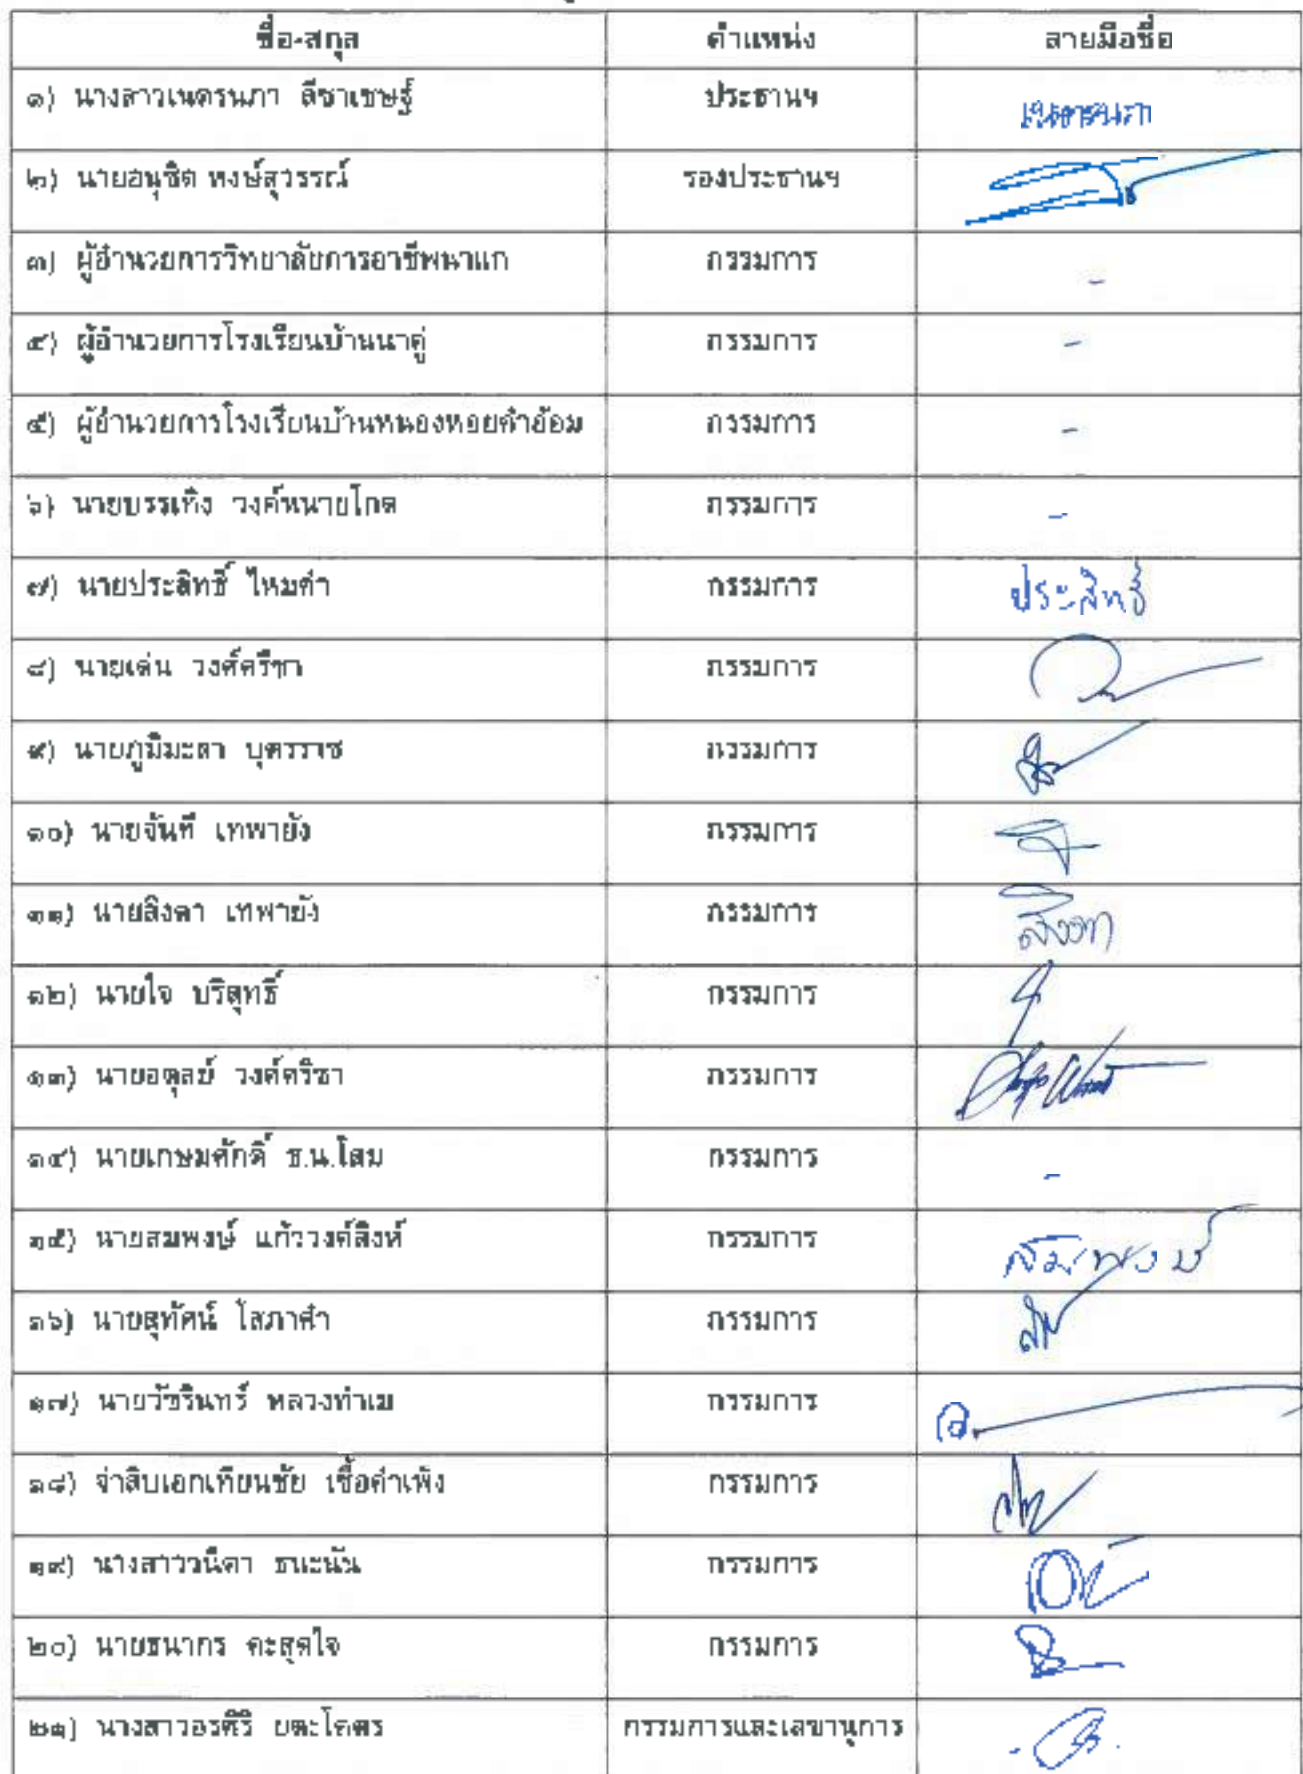 ชื่อ-สกุล ตำแหน่ง ลายมือชื่อ
๑) นางสาวเนตรนภา ลีชาเชษฐ์ ประธานฯ เนตรนภา
๒) นายอนุชิต หงษ์สุวรรณ์ รองประธานฯ
๓) ผู้อำนวยการวิทยาลัยการอาชีพนาแก กรรมการ -
๔) ผู้อำนวยการโรงเรียนบ้านนาคู่ กรรมการ -
๕) ผู้อำนวยการโรงเรียนบ้านหนองหอยคำอ้อม กรรมการ -
๖) นายบรรเทิง วงค์หนายโกด กรรมการ -
๗) นายประสิทธิ์ ไหมคำ กรรมการ ประสิทธิ์
๘) นายเด่น วงศ์ตรีชา กรรมการ
๙) นายภูมีมะลา บุตรราช กรรมการ
๑๐) นายจันที เทพายัง กรรมการ
๑๑) นายสิงดา เทพายัง กรรมการ สิงดา
๑๒) นายใจ บริสุทธิ์ กรรมการ
๑๓) นายอดุลย์ วงค์ตรีชา กรรมการ
๑๔) นายเกษมศักดิ์ ธ.น.โสม กรรมการ -
๑๕) นายสมพงษ์ แก้ววงค์สิงห์ กรรมการ สมพงษ์
๑๖) นายสุทัศน์ โสภาคำ กรรมการ
๑๗) นายวัชรินทร์ หลวงทำเม กรรมการ
๑๘) จ่าสิบเอกเทียนชัย เชื้อคำเพ็ง กรรมการ
๑๙) นางสาววนิดา ธนะนัน กรรมการ
๒๐) นายธนากร คะสุดใจ กรรมการ
๒๑) นางสาวอรศิริ ยตะโคตร กรรมการและเลขานุการ